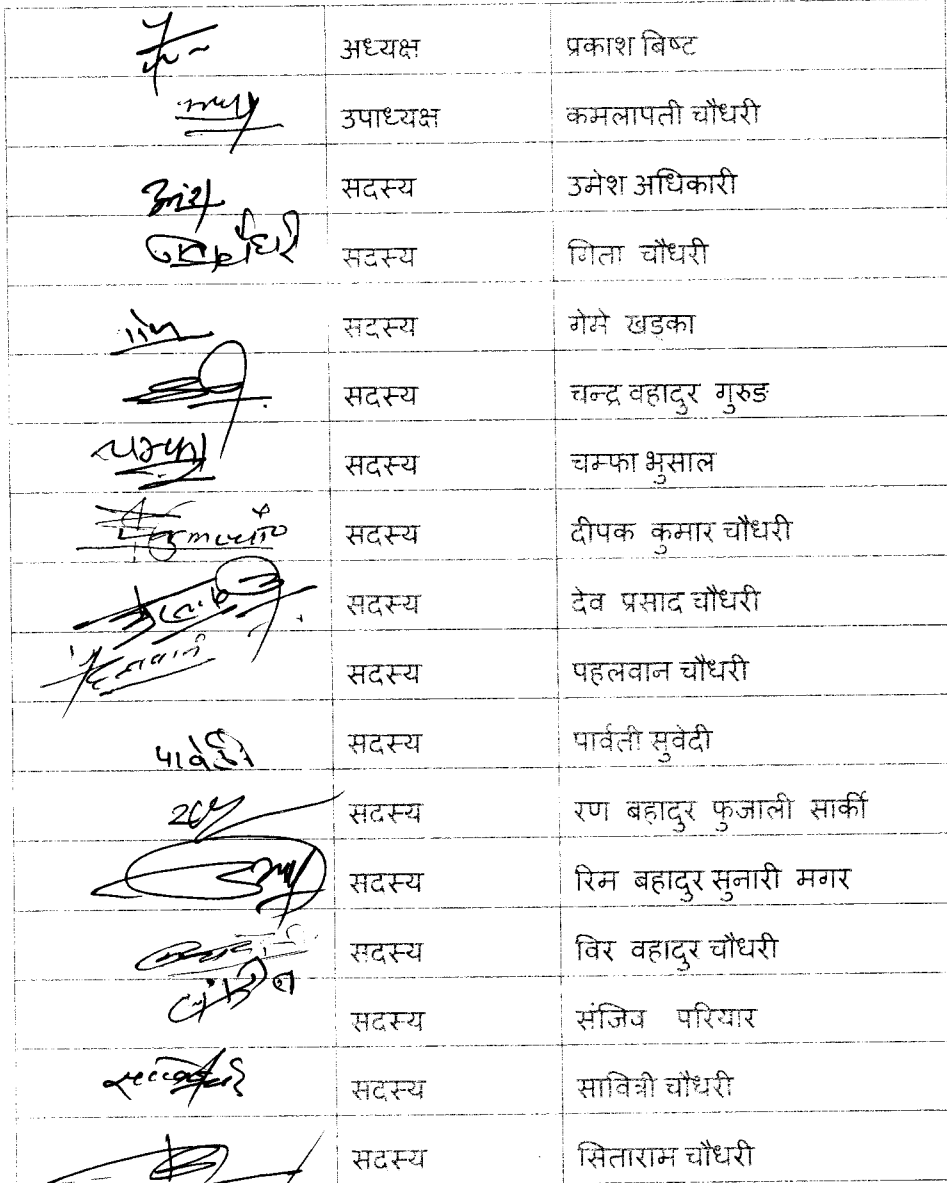 अध्यक्ष प्रकाश बिष्ट
उपाध्यक्ष कमलापती चौधरी
सदस्य उमेश अधिकारी
सदस्य गिता चौधरी
सदस्य गेमे खड्का
सदस्य चन्द्र वहादुर गुरुङ
सदस्य चम्फा भुसाल
सदस्य दीपक कुमार चौधरी
सदस्य देव प्रसाद चौधरी
सदस्य पहलवान चौधरी
पार्वती सदस्य पार्वती सुवेदी
सदस्य रण बहादुर फुजाली सार्की
सदस्य रिम बहादुर सुनारी मगर
सदस्य विर वहादुर चौधरी
सदस्य संजिव परियार
सदस्य सावित्री चौधरी
सदस्य सिताराम चौधरी